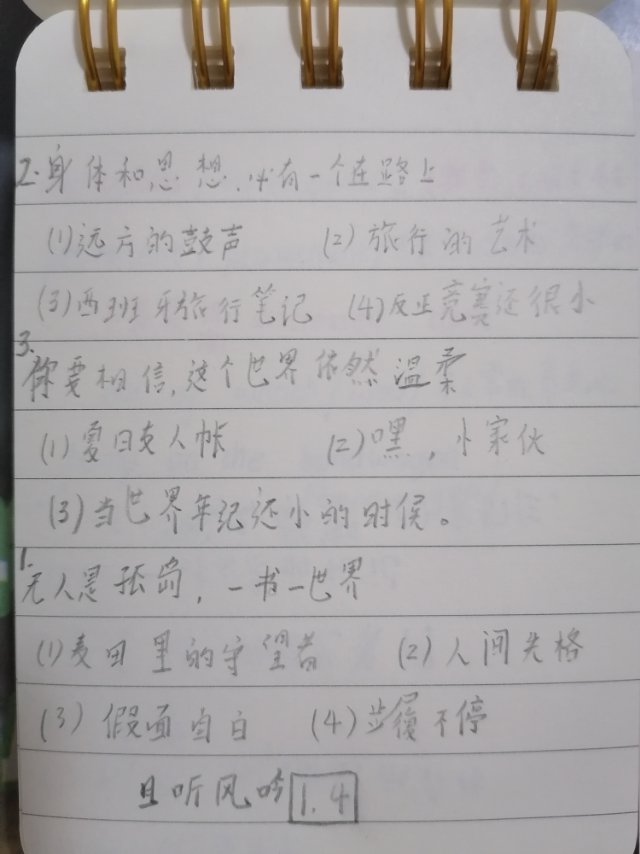 2.身体和思想,必有一个在路上
(1)远方的鼓声 (2)旅行的艺术
(3)西班牙旅行笔记 (4)反正竞赛还很小
3.你要相信,这个世界依然温柔
(1)夏日友人帐 (2)嘿,小家伙
(3)当世界年纪还小的时候。
1.无人是孤岛,一书一世界
(1)麦田里的守望者 (2)人间失格
(3)假面自白 (4)步履不停
且听风吟 1.4